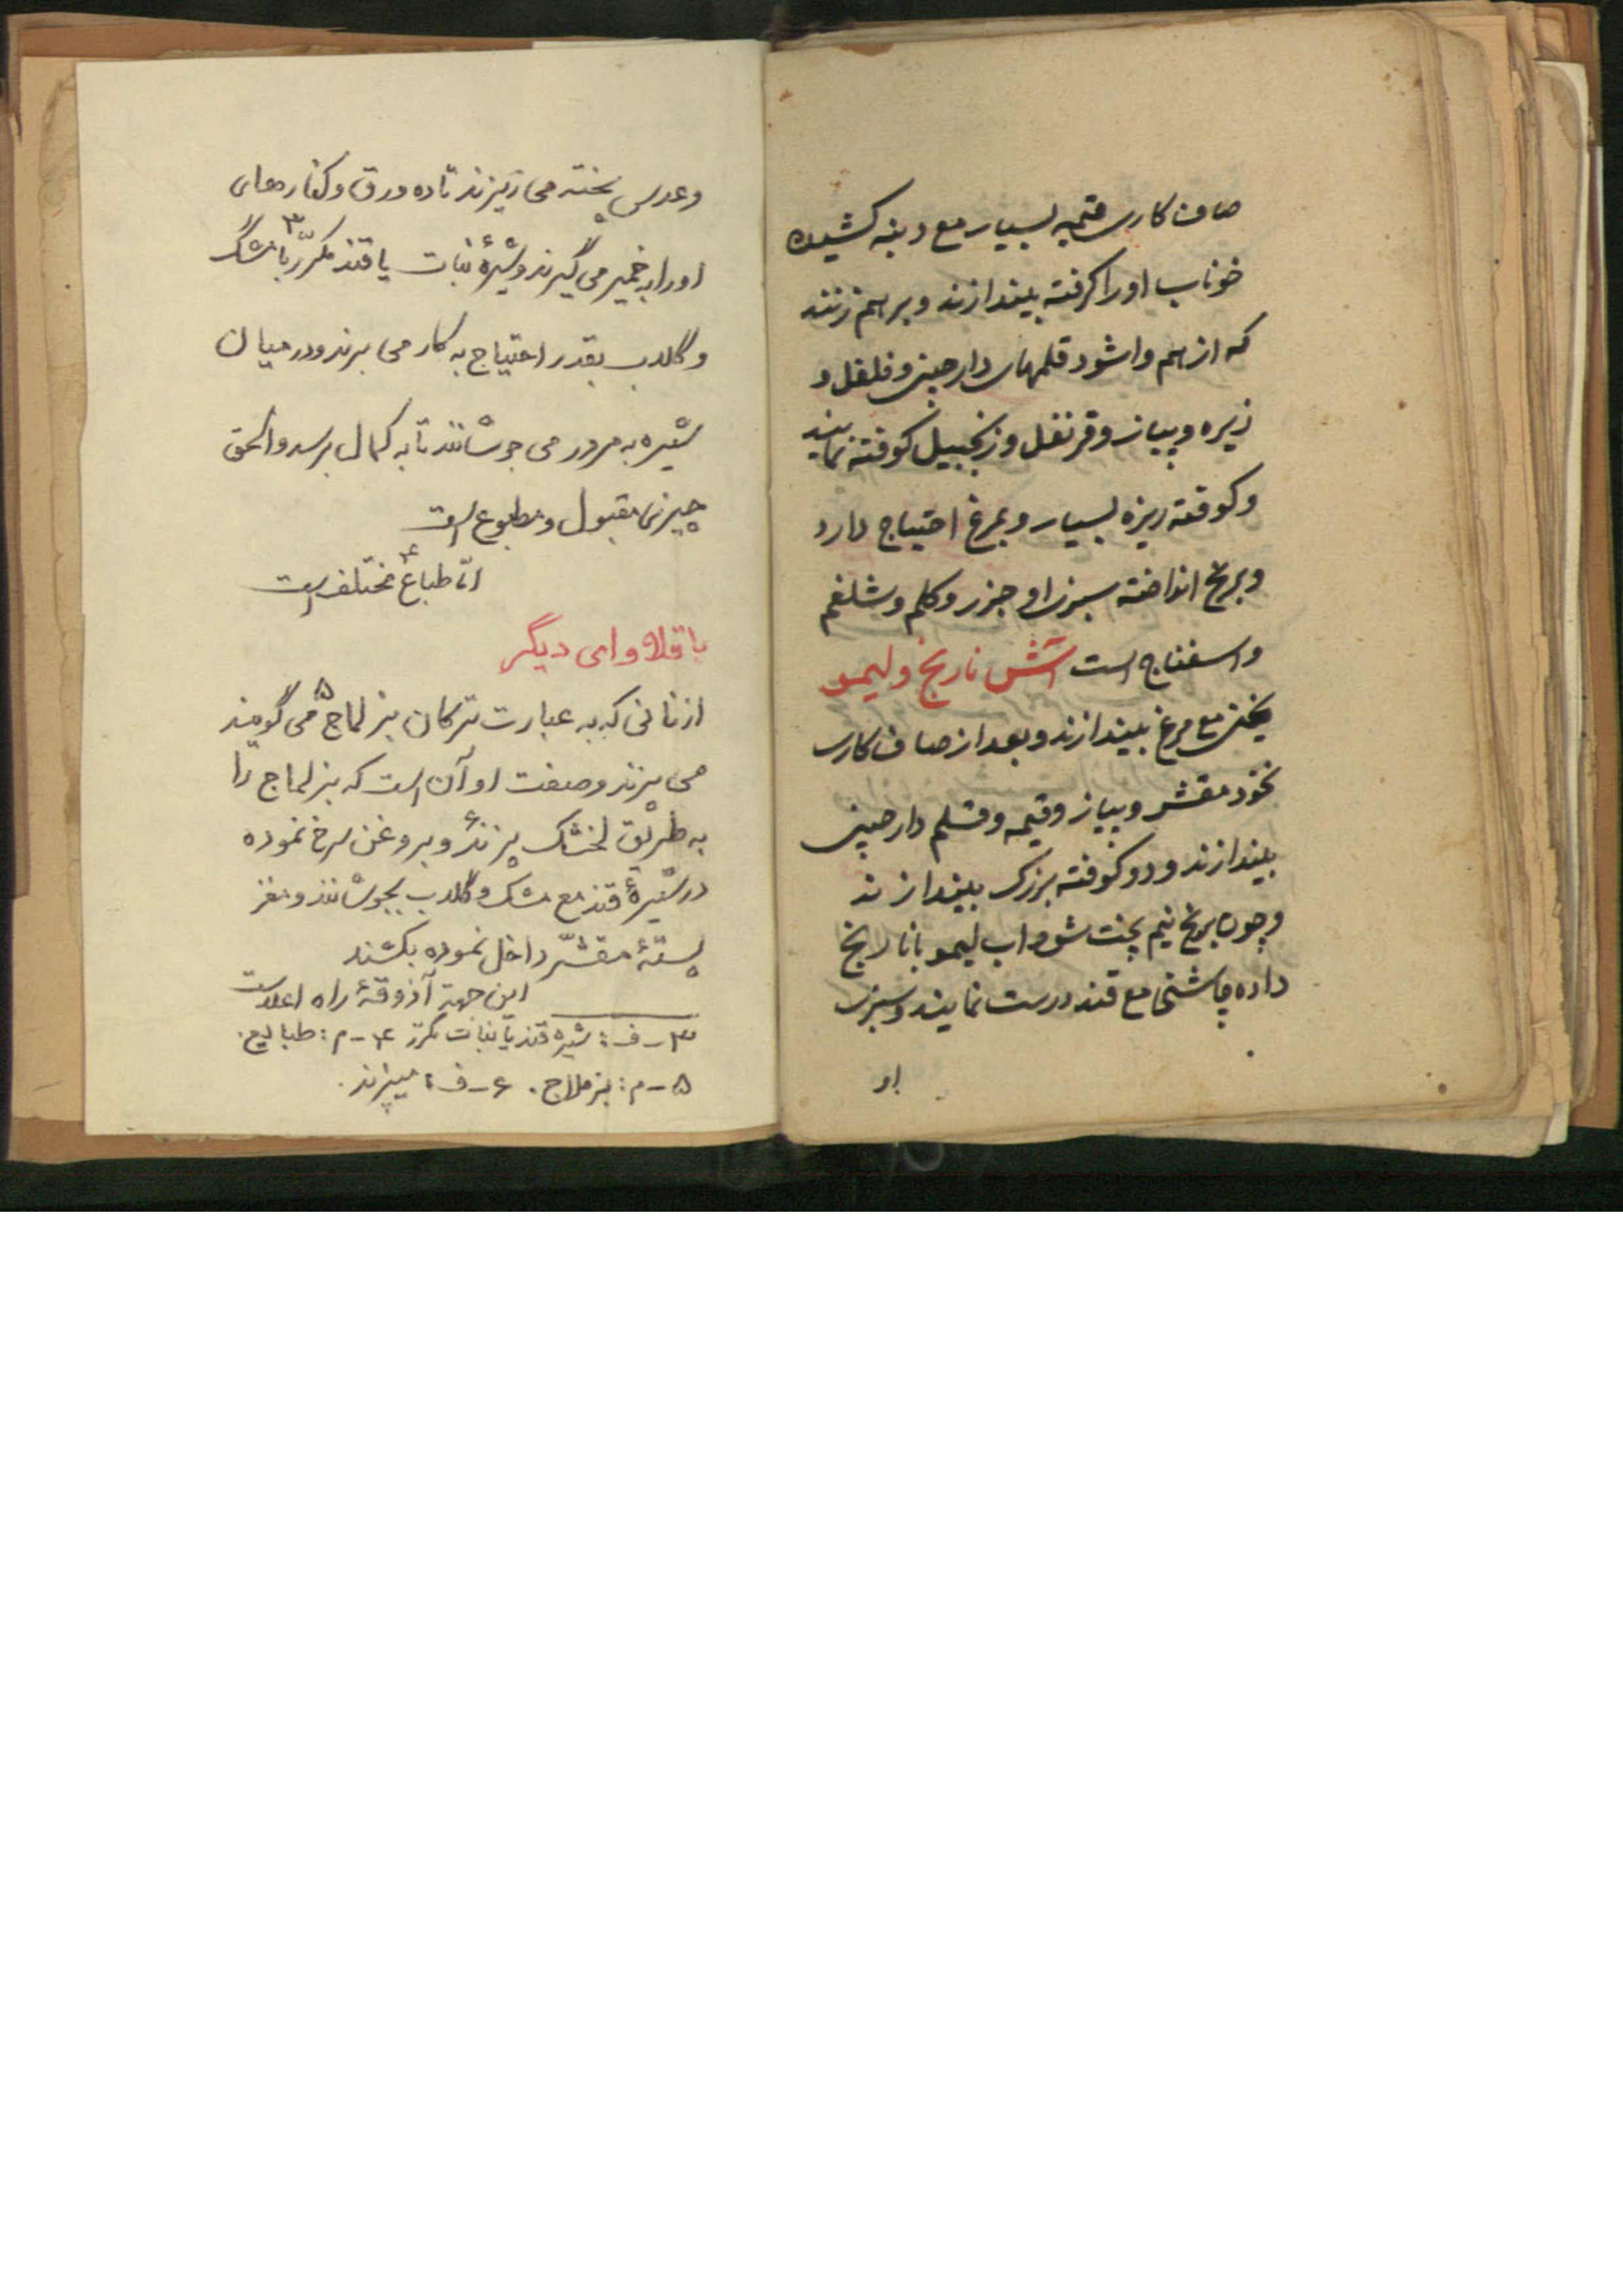 صاف کاری قیمه بسیار مع دنبه کشیده
خوناب او را کرفته بیندازند و بر هم زنند
که از هم وا شود قلمهای دارچینی و فلفل و
زیره و پیاز و قرنفل و زنجبیل کوفته نمایند
و کوفته ریزه بسیار و بمرغ احتیاج دارد
و برنج انداخته سبزی او جزر و کلم و شلغم
و اسفناج است آتش نارنج و لیمو
یخنی مع مرغ بیندازند و بعد از صاف کاری
نخود مقشر و پیاز و قیمه و قلم دارچینی
بیندازند و دو کوفته بزرک بیندازند
و چون برنج نیم پخت شود اب لیمو با نارنج
داده چاشنی مع قند درست نمایند و سبزی
او
و عدس پخته می‌ریزند تا ده ورق و کنارهای
او را به خمیر می‌گیرند و شیرهٔ نبات یا قند مکرّر۳ با مشک
و گلاب بقدر احتیاج به کار می‌برند و در میان
شیره به مرور می‌جوشانند تا به کمال برسد و الحق
چیزی مقبول و مطبوع است
امّا طباع۴ مختلف است
باقلاوای دیگر
از نانی که به عبارت ترکان بزلماج۵ می‌گویند
می‌پزند و صنعت او آن است که بزلماج را
به طریق لخشک پزند۶ و بروغن سرخ نموده
در شیرهٔ قند مع مشک و گلاب بجوشانند و مغز
پستهٔ مقشّر داخل نموده بکشند
این جهة آذوقهٔ راه اعلاست
۳- ف: شیره قند یا نبات مکرّر ۴- م: طبایع.
۵- م: بزملاج. ۶- ف: میپزند.